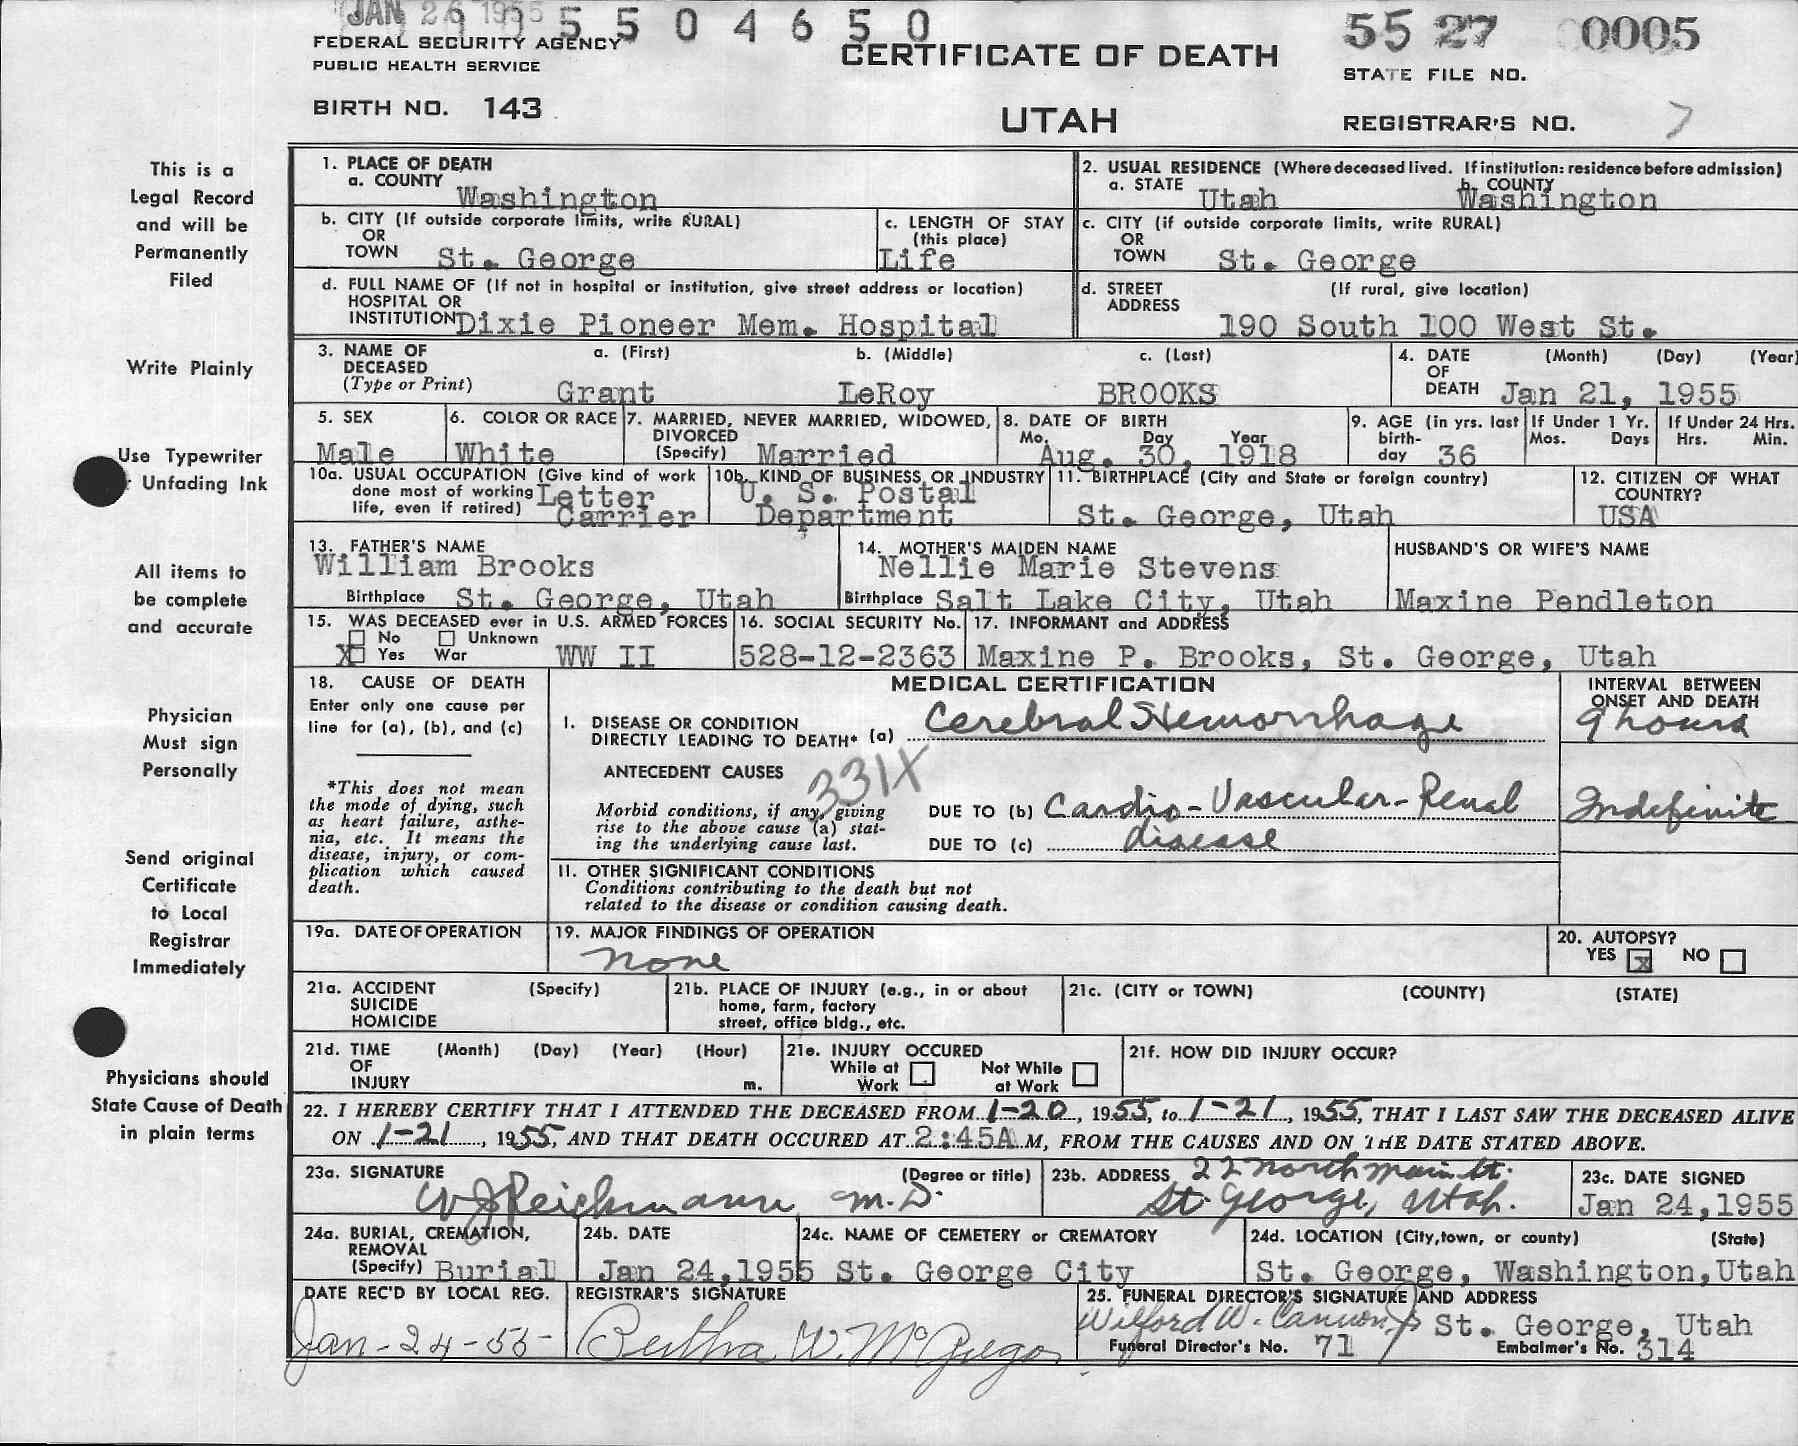 JAN 26 1955 5 5 0 4 6 5 0
55 27 0005
FEDERAL SECURITY AGENCY
PUBLIC HEALTH SERVICE
CERTIFICATE OF DEATH
STATE FILE NO.
BIRTH NO. 143
UTAH
REGISTRAR'S NO. 7
This is a
Legal Record
and will be
Permanently
Filed
Write Plainly
Use Typewriter
Unfading Ink
All items to
be complete
and accurate
Physician
Must sign
Personally
Send original
Certificate
to Local
Registrar
Immediately
Physicians should
State Cause of Death
in plain terms
1. PLACE OF DEATH
a. COUNTY Washington
2. USUAL RESIDENCE (Where deceased lived. If institution: residence before admission)
a. STATE Utah b. COUNTY Washington
b. CITY (If outside corporate limits, write RURAL)
OR
TOWN St. George
c. LENGTH OF STAY
(this place)
Life
c. CITY (if outside corporate limits, write RURAL)
OR
TOWN St. George
d. FULL NAME OF (If not in hospital or institution, give street address or location)
HOSPITAL OR
INSTITUTION Dixie Pioneer Mem. Hospital
d. STREET (If rural, give location)
ADDRESS
190 South 100 West St.
3. NAME OF a. (First) b. (Middle) c. (Last)
DECEASED
(Type or Print) Grant LeRoy BROOKS
4. DATE (Month) (Day) (Year)
OF
DEATH Jan 21, 1955
5. SEX
Male
6. COLOR OR RACE
White
7. MARRIED, NEVER MARRIED, WIDOWED,
DIVORCED
(Specify) Married
8. DATE OF BIRTH
Mo. Day Year
Aug. 30, 1918
9. AGE (in yrs. last
birth-
day 36
If Under 1 Yr.
Mos. Days
If Under 24 Hrs.
Hrs. Min.
10a. USUAL OCCUPATION (Give kind of work
done most of working Letter
life, even if retired) Carrier
10b. KIND OF BUSINESS OR INDUSTRY
U. S. Postal
Department
11. BIRTHPLACE (City and State or foreign country)
St. George, Utah
12. CITIZEN OF WHAT
COUNTRY?
USA
13. FATHER'S NAME
William Brooks
Birthplace St. George, Utah
14. MOTHER'S MAIDEN NAME
Nellie Marie Stevens
Birthplace Salt Lake City, Utah
HUSBAND'S OR WIFE'S NAME
Maxine Pendleton
15. WAS DECEASED ever in U.S. ARMED FORCES
No Unknown
X Yes War WW II
16. SOCIAL SECURITY No.
528-12-2363
17. INFORMANT and ADDRESS
Maxine P. Brooks, St. George, Utah
18. CAUSE OF DEATH
Enter only one cause per
line for (a), (b), and (c)
*This does not mean
the mode of dying, such
as heart failure, asthe-
nia, etc. It means the
disease, injury, or com-
plication which caused
death.
MEDICAL CERTIFICATION
INTERVAL BETWEEN
ONSET AND DEATH
I. DISEASE OR CONDITION
DIRECTLY LEADING TO DEATH* (a) Cerebral Hemorrhage
9 hours
ANTECEDENT CAUSES
331X
Morbid conditions, if any, giving
rise to the above cause (a) stat-
ing the underlying cause last.
DUE TO (b) Cardio-Vascular-Renal
Indefinite
DUE TO (c) disease
11. OTHER SIGNIFICANT CONDITIONS
Conditions contributing to the death but not
related to the disease or condition causing death.
19a. DATE OF OPERATION
19. MAJOR FINDINGS OF OPERATION
none
20. AUTOPSY?
YES x NO
21a. ACCIDENT (Specify)
SUICIDE
HOMICIDE
21b. PLACE OF INJURY (e.g., in or about
home, farm, factory
street, office bldg., etc.
21c. (CITY or TOWN) (COUNTY) (STATE)
21d. TIME (Month) (Day) (Year) (Hour)
OF
INJURY m.
21e. INJURY OCCURED
While at Not While
Work at Work
21f. HOW DID INJURY OCCUR?
22. I HEREBY CERTIFY THAT I ATTENDED THE DECEASED FROM 1-20, 1955, to 1-21, 1955, THAT I LAST SAW THE DECEASED ALIVE
ON 1-21, 1955, AND THAT DEATH OCCURED AT 2:45A M, FROM THE CAUSES AND ON THE DATE STATED ABOVE.
23a. SIGNATURE (Degree or title)
W J Reichmann M.D.
23b. ADDRESS 22 North Main St.
St. George, Utah.
23c. DATE SIGNED
Jan 24, 1955
24a. BURIAL, CREMATION,
REMOVAL
(Specify) Burial
24b. DATE
Jan 24, 1955
24c. NAME OF CEMETERY or CREMATORY
St. George City
24d. LOCATION (City, town, or county) (State)
St. George, Washington, Utah
DATE REC'D BY LOCAL REG.
Jan-24-55-
REGISTRAR'S SIGNATURE
Bertha W. McGregor
25. FUNERAL DIRECTOR'S SIGNATURE AND ADDRESS
Wilford W. Cannon Jr St. George, Utah
Funeral Director's No. 71 Embalmer's No. 314